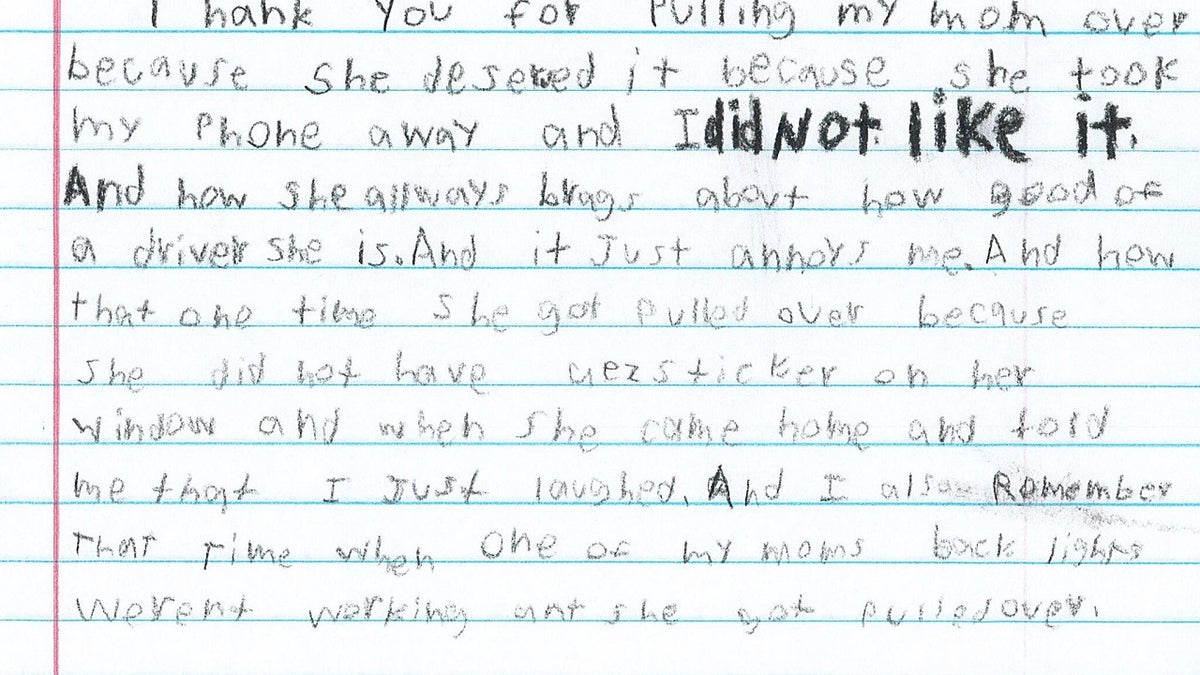 Thank You for Pulling my mom over
because she desered it because she took
my Phone away and I did Not like it.
And how she allways brags about how good of
a driver she is. And it Just annoys me. And how
that one time she got pulled over because
she did not have sticker on her
window and when she came home and told
me that I Just laughed. And I also Remember
That Time when one of my moms back lights
Werent working ant she got pulled over.